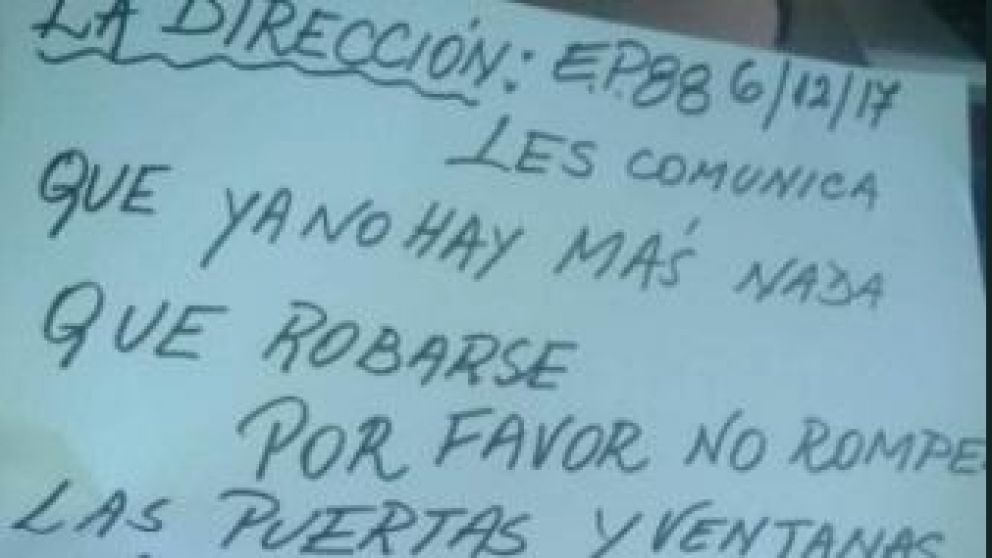 LA DIRECCIÓN: E.P.88 6/12/17
LES COMUNICA
QUE YA NO HAY MÁS NADA
QUE ROBARSE
POR FAVOR NO ROMPE
LAS PUERTAS Y VENTANAS